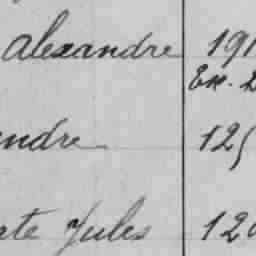 Alexandre 191
Ex. 2
ndre 125
ate Jules 12